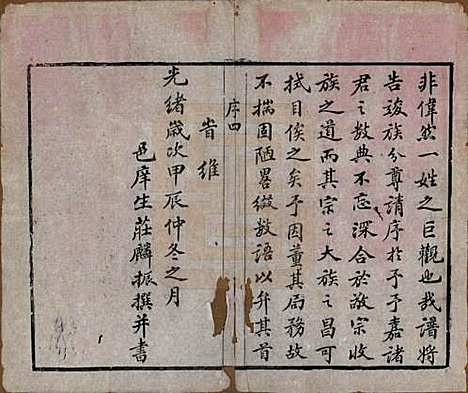 非偉然一姓之巨觀也哉譜將
告竣族分尊請序於予予嘉諸
君之數典不忘深合於敬宗收
族之道而其宗之大族之昌可
拭目俟之矣予因董其局務故
不揣固陋畧綴數語以弁其首
序四
昔維
光緒歲次甲辰仲冬之月
邑庠生莊麟振撰并書